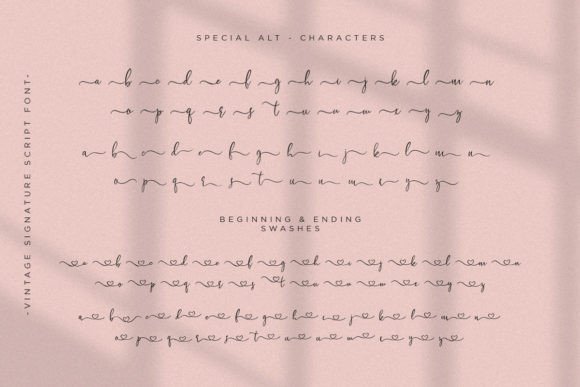 -VINTAGE SIGNATURE SCRIPT FONT-
SPECIAL ALT - CHARACTERS
a b c d e f g h i j k l m n
o p q r s t u v w x y z
a b c d e f g h i j k l m n
o p q r s t u v w x y z
BEGINNING & ENDING
SWASHES
a b c d e f g h i j k l m n
o p q r s t u v w x y z
a b c d e f g h i j k l m n
o p q r s t u v w x y z